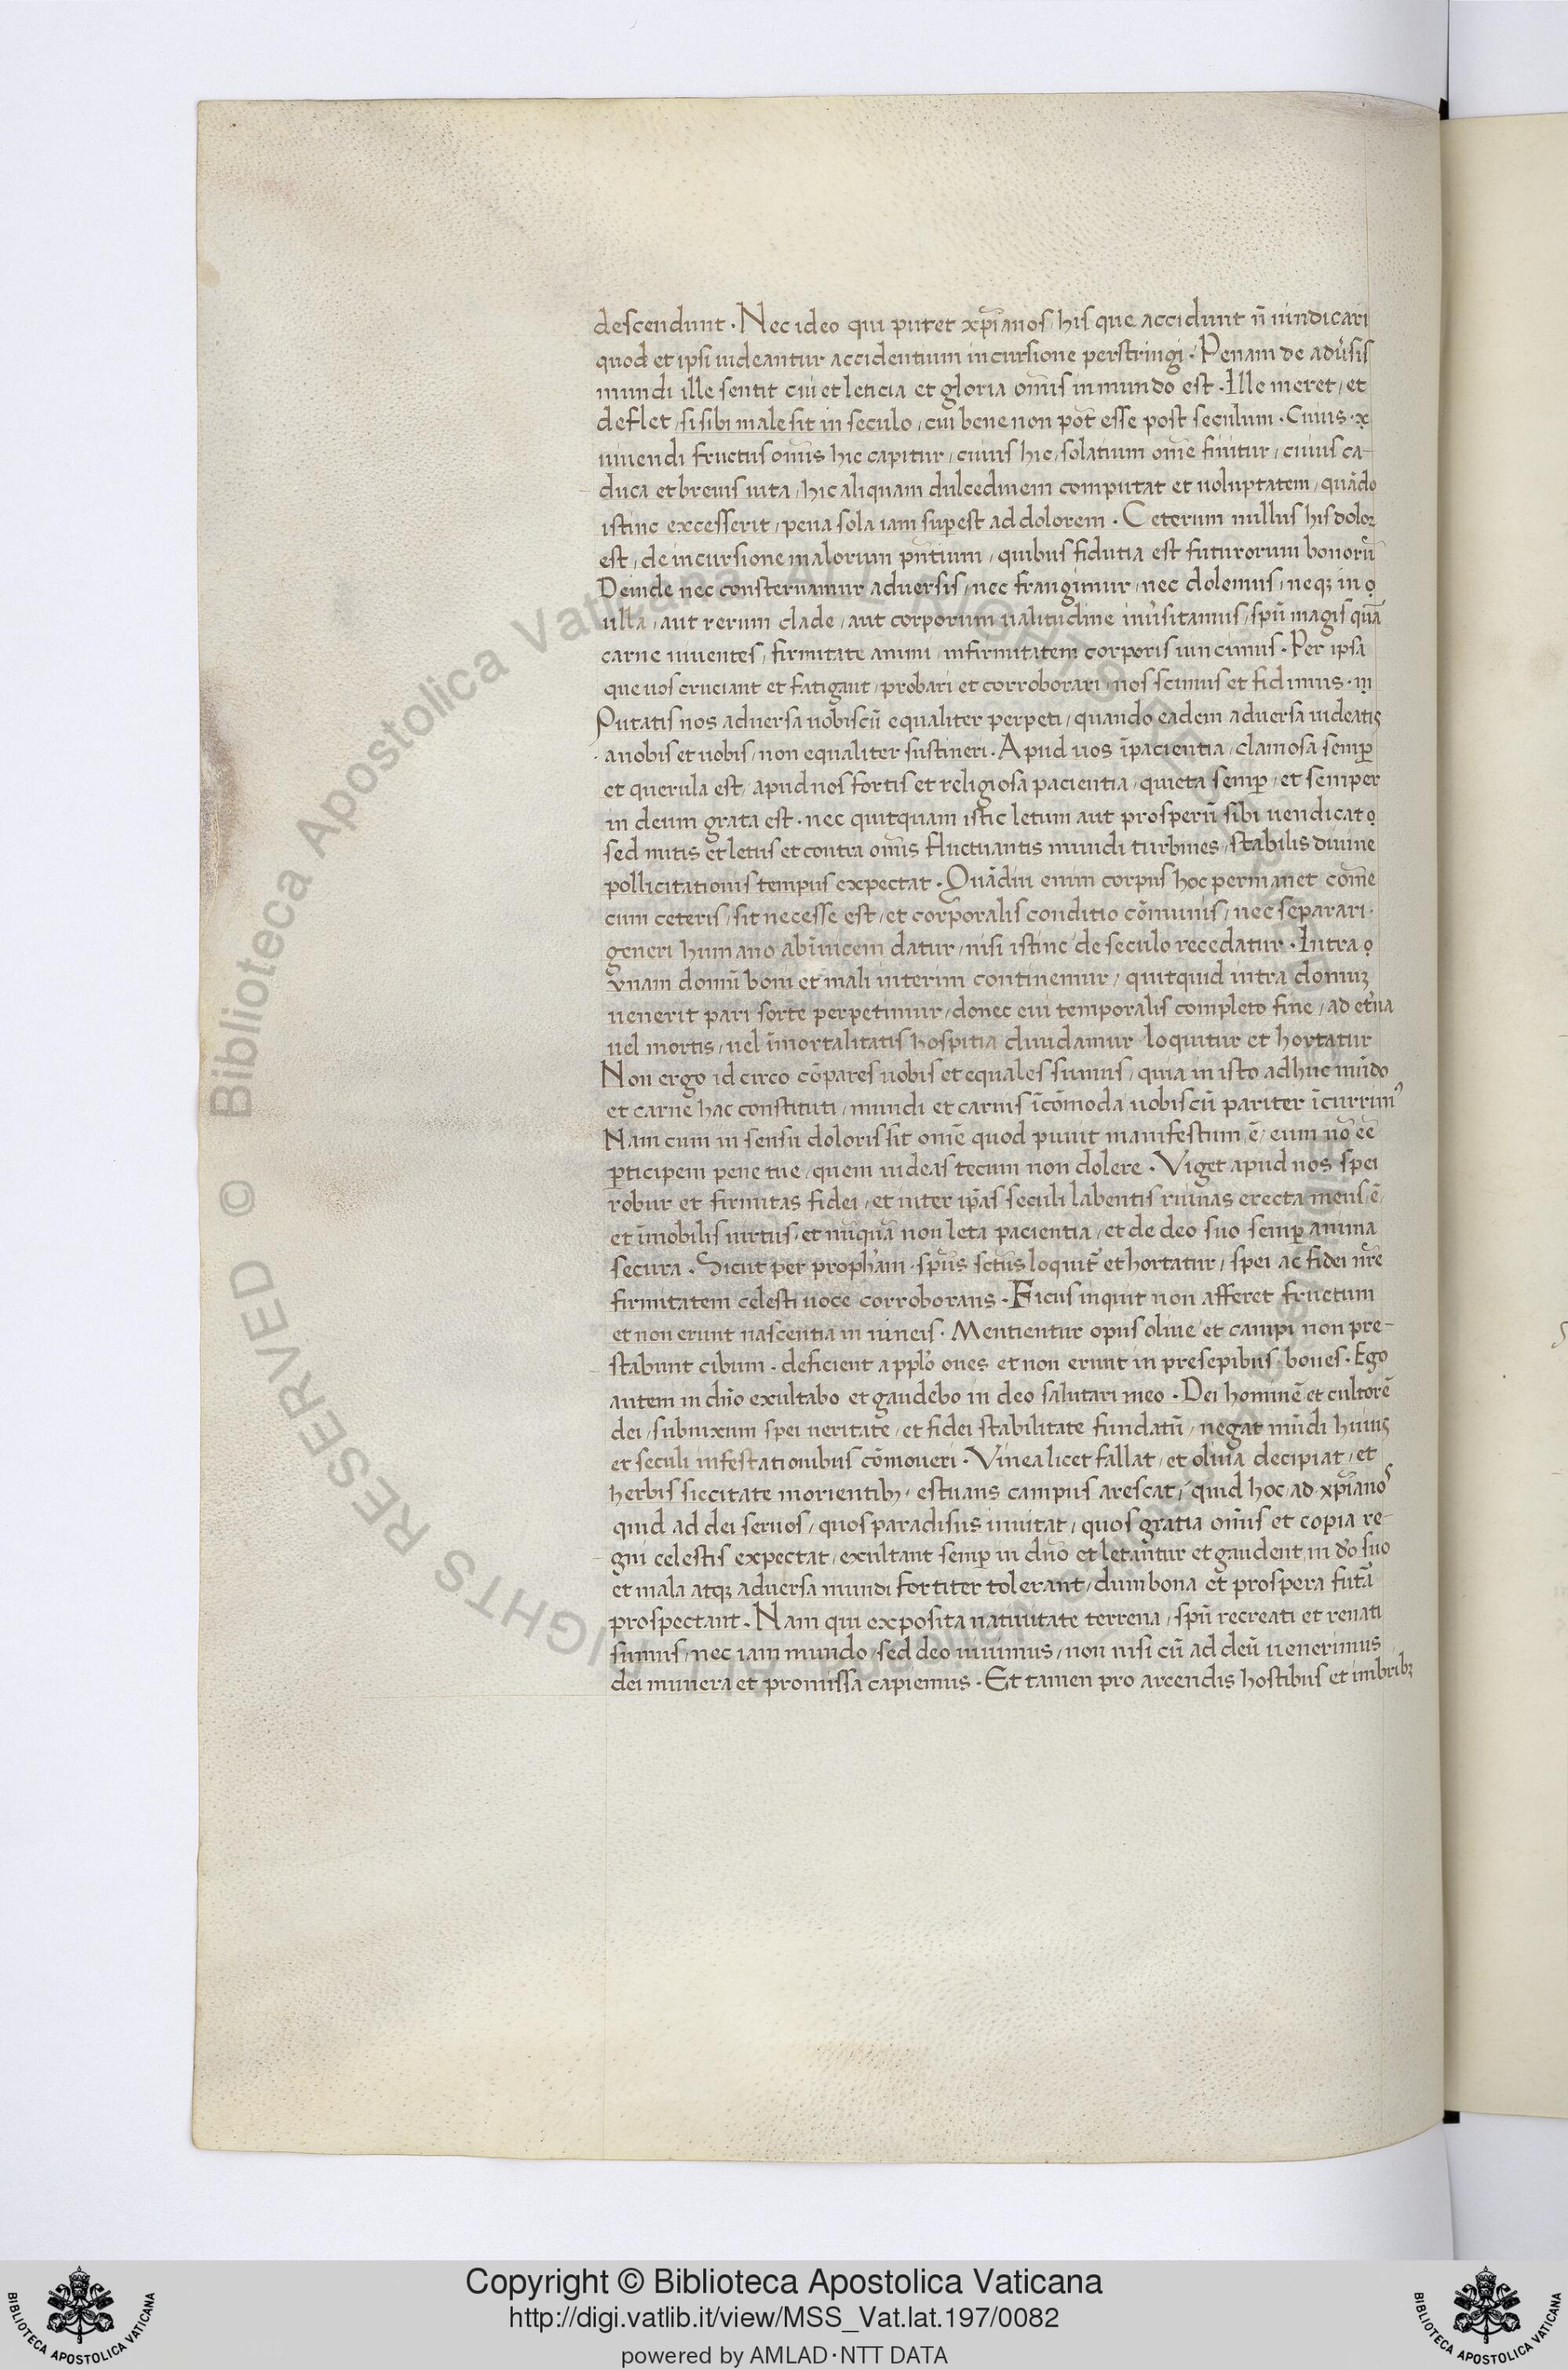 descendunt · Nec ideo qui putet xp̄ianos his que accidunt n̄ uindicari
quod et ipsi uideantur accidentium incursione perstringi · Penam de adu̓sis
mundi ille sentit cui et leticia et gloria om̄is in mundo est · Ille meret / et
deflet / si sibi male sit in seculo / cui bene non pōt esse post seculum · Cuius ·
uiuendi fructus om̄is hic capitur / cuius hic / solatium om̄e finitur / cuius ca-
duca et breuis uita / hic aliquam dulcedinem computat et uoluptatem / quādo
istinc excesserit / pena sola iam suꝑest ad dolorem · Ceterum nullus his dolor
est / de incursione malorum pn̄tium / quibus fidutia est futurorum bonorū
Deinde nec consternamur aduersis / nec frangimur / nec dolemus / neqȝ in
ulla / aut rerum clade / aut corporum ualitudine mu̓sitamus / spū magis quā
carne uiuentes / firmitate animi / infirmitatem corporis uincimus · Per ipsa
que uos cruciant et fatigant / probari et corroborari / nos scimus et fidimus ·
Putatis nos aduersa uobiscū equaliter perpeti / quando eadem aduersa uideatis
anobis et uobis / non equaliter sustineri · Apud uos īpacientia / clamosa semꝑ
et querula est / apud nos fortis et religiosa pacientia / quieta semꝑ / et semper
in deum grata est · nec quitquam istic letum aut prosperū sibi uendicat
sed mitis et letus et contra om̄is fluctuantis mundi turbines / stabilis diuine
pollicitationis tempus expectat · Quādiu enim corpus hoc permanet com̄e
cum ceteris / sit necesse est / et corporalis conditio cōmunis / nec separari ·
generi humano abīuicem datur / nisi istinc de seculo recedatur · Intra
vnam domū boni et mali interim continemur / quitquid intra domuȝ
uenerit pari sorte perpetimur / donec eui temporalis completo fine / ad etn̓a
uel mortis / uel īmortalitatis hospitia diuidamur loquitur et hortatur
Non ergo id circo cōpares uobis et equales sumus / quia in isto adhuc mūdo
et carne hac constituti / mundi et carnis īcōmoda uobiscū pariter īcurrimꝰ
Nam cum in sensu doloris sit om̄e quod punit manifestum ē / eum nō eē
ꝑticipem pene tue / quem uideas tecum non dolere · Viget apud nos spei
robur et firmitas fidei / et inter ip̄as seculi labentis ruinas erecta mens ē /
et īmobilis uirtus / et nūquā non leta pacientia / et de deo suo semꝑ anima
secura · Sicut per propham̄ · spūs sctūs loquit̄ et hortatur / spei ac fidei nr̄e
firmitatem celesti uoce corroborans · Ficus inquit non afferet fructum
et non erunt nascentia in uineis · Mentientur opus oliue et campi non pre-
stabunt cibum · deficient a pplo̓ oues et non erunt in presepibus boues · Ego
autem in dn̄o exultabo et gaudebo in deo salutari meo · Dei hominē et cultorē
dei / subnixum spei ueritate / et fidei stabilitate fundatū / negat mūdi huius
et seculi infestationibus cōmoueri · Vinea licet fallat / et oliua decipiat / et
herbis siccitate morientibȝ / estuans campus arescat / quid hoc ad xp̄ianos
quid ad dei seruos / quos paradisus inuitat / quos gratia om̄is et copia re-
gni celestis expectat / exultant semꝑ in dn̄o et letantur et gaudent in do̓ suo
et mala atqȝ aduersa mundi fortiter tolerant / dum bona et prospera futā
prospectant · Nam qui exposita natiuitate terrena / spū recreati et renati
sumus / nec iam mundo / sed deo uiuimus / non nisi cū ad deū uenerimus
dei munera et promissa capiemus · Et tamen pro arcendis hostibus et imbribȝ
© Biblioteca Apostolica Vaticana ALL RIGHTS RESERVED
Copyright © Biblioteca Apostolica Vaticana
http://digi.vatlib.it/view/MSS_Vat.lat.197/0082
powered by AMLAD·NTT DATA
BIBLIOTECA APOSTOLICA VATICANA
BIBLIOTECA APOSTOLICA VATICANA